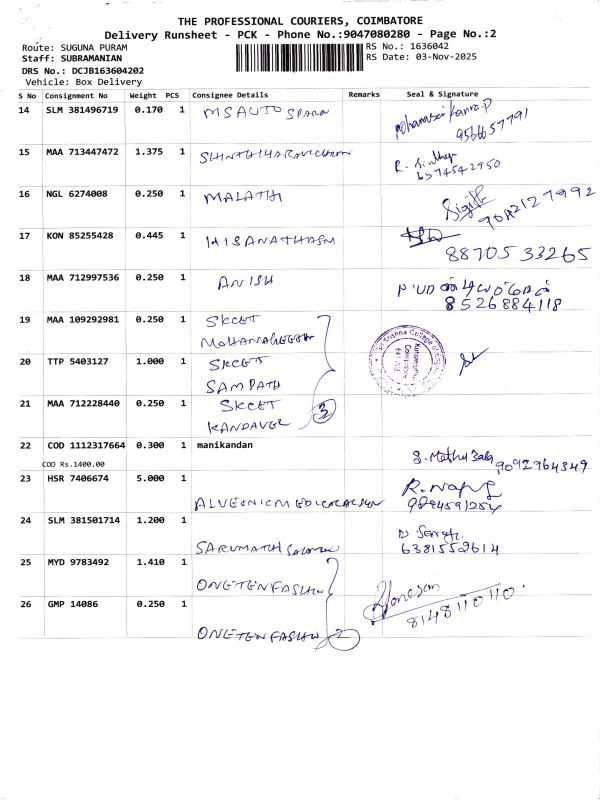 THE PROFESSIONAL COURIERS, COIMBATORE
Delivery Runsheet - PCK - Phone No.:9047080280 - Page No.:2
Route: SUGUNA PURAM
RS No.: 1636042
Staff: SUBRAMANIAN
RS Date: 03-Nov-2025
DRS No.: DCJB163604202
Vehicle: Box Delivery
S No Consignment No Weight PCS Consignee Details Remarks Seal & Signature
14 SLM 381496719 0.170 1 MS AUTO
9566657791
15 MAA 713447472 1.375 1
R.
6374542950
16 NGL 6274008 0.250 1 MALATHI
9042127992
17 KON 85255428 0.445 1
8870533265
18 MAA 712997536 0.250 1 ANISH
8526884118
19 MAA 109292981 0.250 1 SKCET
20 TTP 5403127 1.000 1 SKCET
SAMPATH
21 MAA 712228440 0.250 1 SKCET
KANDAVEL 3
22 COD 1112317664 0.300 1 manikandan
COD Rs.1400.00
9092964349
23 HSR 7406674 5.000 1
24 SLM 381501714 1.200 1
SARUMATHI
6381552614
25 MYD 9783492 1.410 1
ONETEN FASHION
26 GMP 14086 0.250 1
8148110110.
ONETEN FASHION 2